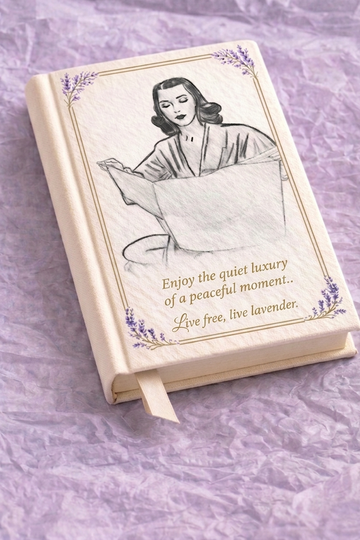 Enjoy the quiet luxury
of a peaceful moment..
Live free, live lavender.